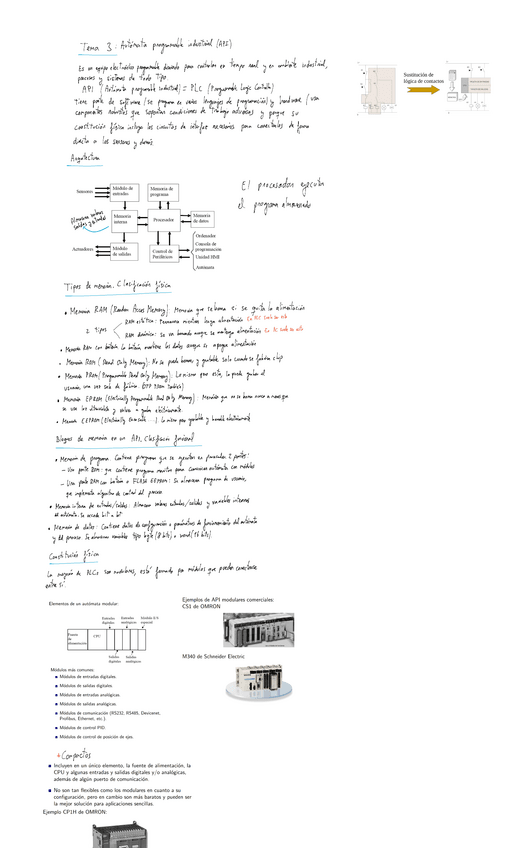 Tema 3: Autómata programable industrial (API)
Es un equipo electrónico programable diseñado para controlar en tiempo real y en ambiente industrial,
procesos y sistemas de todo tipo.
API (Autómata programable industrial) = PLC (Programable Logic Controller)
Tiene parte de software (se programa en varios lenguajes de programación) y hardware (usa
componentes robustos que soportan condiciones de trabajo adversas) y porque su
constitución física incluye los circuitos de interfaz necesarios para conectarlos de forma
directa a los sensores y demás
Sustitución de
lógica de contactos
Arquitectura
Sensores
Módulo de
entradas
Memoria de
programa
Memoria
interna
Procesador
Memoria
de datos
Actuadores
Módulo
de salidas
Control de
Periféricos
Ordenador
Consola de
programación
Unidad HMI
Autómata
El procesador ejecuta
el programa almacenado
Tipos de memoria. Clasificación física
• Memoria RAM (Random Access Memory): Memoria que se borra si se quita la alimentación
2 tipos
RAM estática: Permanece mientras haya alimentación
RAM dinámica: Se va borrando aunque se mantenga alimentación
• Memoria RAM con batería: La batería mantiene los datos aunque se apague alimentación
• Memoria ROM (Read Only Memory): No se puede borrar y grabable solo cuando se fabrica chip
• Memoria PROM (Programmable Read Only Memory): Lo mismo que esta, la puede grabar el
usuario una vez
• Memoria EPROM (Electrically Programmable Read Only Memory): Memoria que no se borra nunca a menos que
se use luz ultravioleta y vuelve a grabar eléctricamente
• Memoria EEPROM (Electrically ...): Lo mismo pero grabable y borrable eléctricamente
Bloques de memoria en un API. Clasificación funcional
• Memoria de programa: Contiene programa que se ejecuta en procesador. 2 partes:
– Una parte ROM: que contiene programa monitor para comunicar autómata con módulos
– Una parte RAM con batería o FLASH EEPROM: Se almacena programa de usuario,
que implementa algoritmo de control del proceso
• Memoria interna de entradas/salidas: Almacena valores entradas/salidas y variables internas
de autómata. Se accede bit a bit
• Memoria de datos: Contiene datos de configuración o parámetros de funcionamiento del autómata
y del proceso. Se almacenan variables tipo byte (8 bits) o word (16 bits)
Constitución física
La mayoría de PLCs son modulares, está formado por módulos que pueden conectarse
entre sí.
Elementos de un autómata modular:
Entradas
digitales
Entradas
analógicas
Módulo E/S
especial
Fuente
de
Alimentación
CPU
Salidas
digitales
Salidas
analógicas
Ejemplos de API modulares comerciales:
CS1 de OMRON
M340 de Schneider Electric
Módulos más comunes:
Módulos de entradas digitales.
Módulos de salidas digitales.
Módulos de entradas analógicas.
Módulos de salidas analógicas.
Módulos de comunicación (RS232, RS485, Devicenet,
Profibus, Ethernet, etc.).
Módulos de control PID.
Módulos de control de posición de ejes.
+ Compactos
Incluyen en un único elemento, la fuente de alimentación, la
CPU y algunas entradas y salidas digitales y/o analógicas,
además de algún puerto de comunicación.
No son tan flexibles como los modulares en cuanto a su
configuración, pero en cambio son más baratos y pueden ser
la mejor solución para aplicaciones sencillas.
Ejemplo CP1H de OMRON: